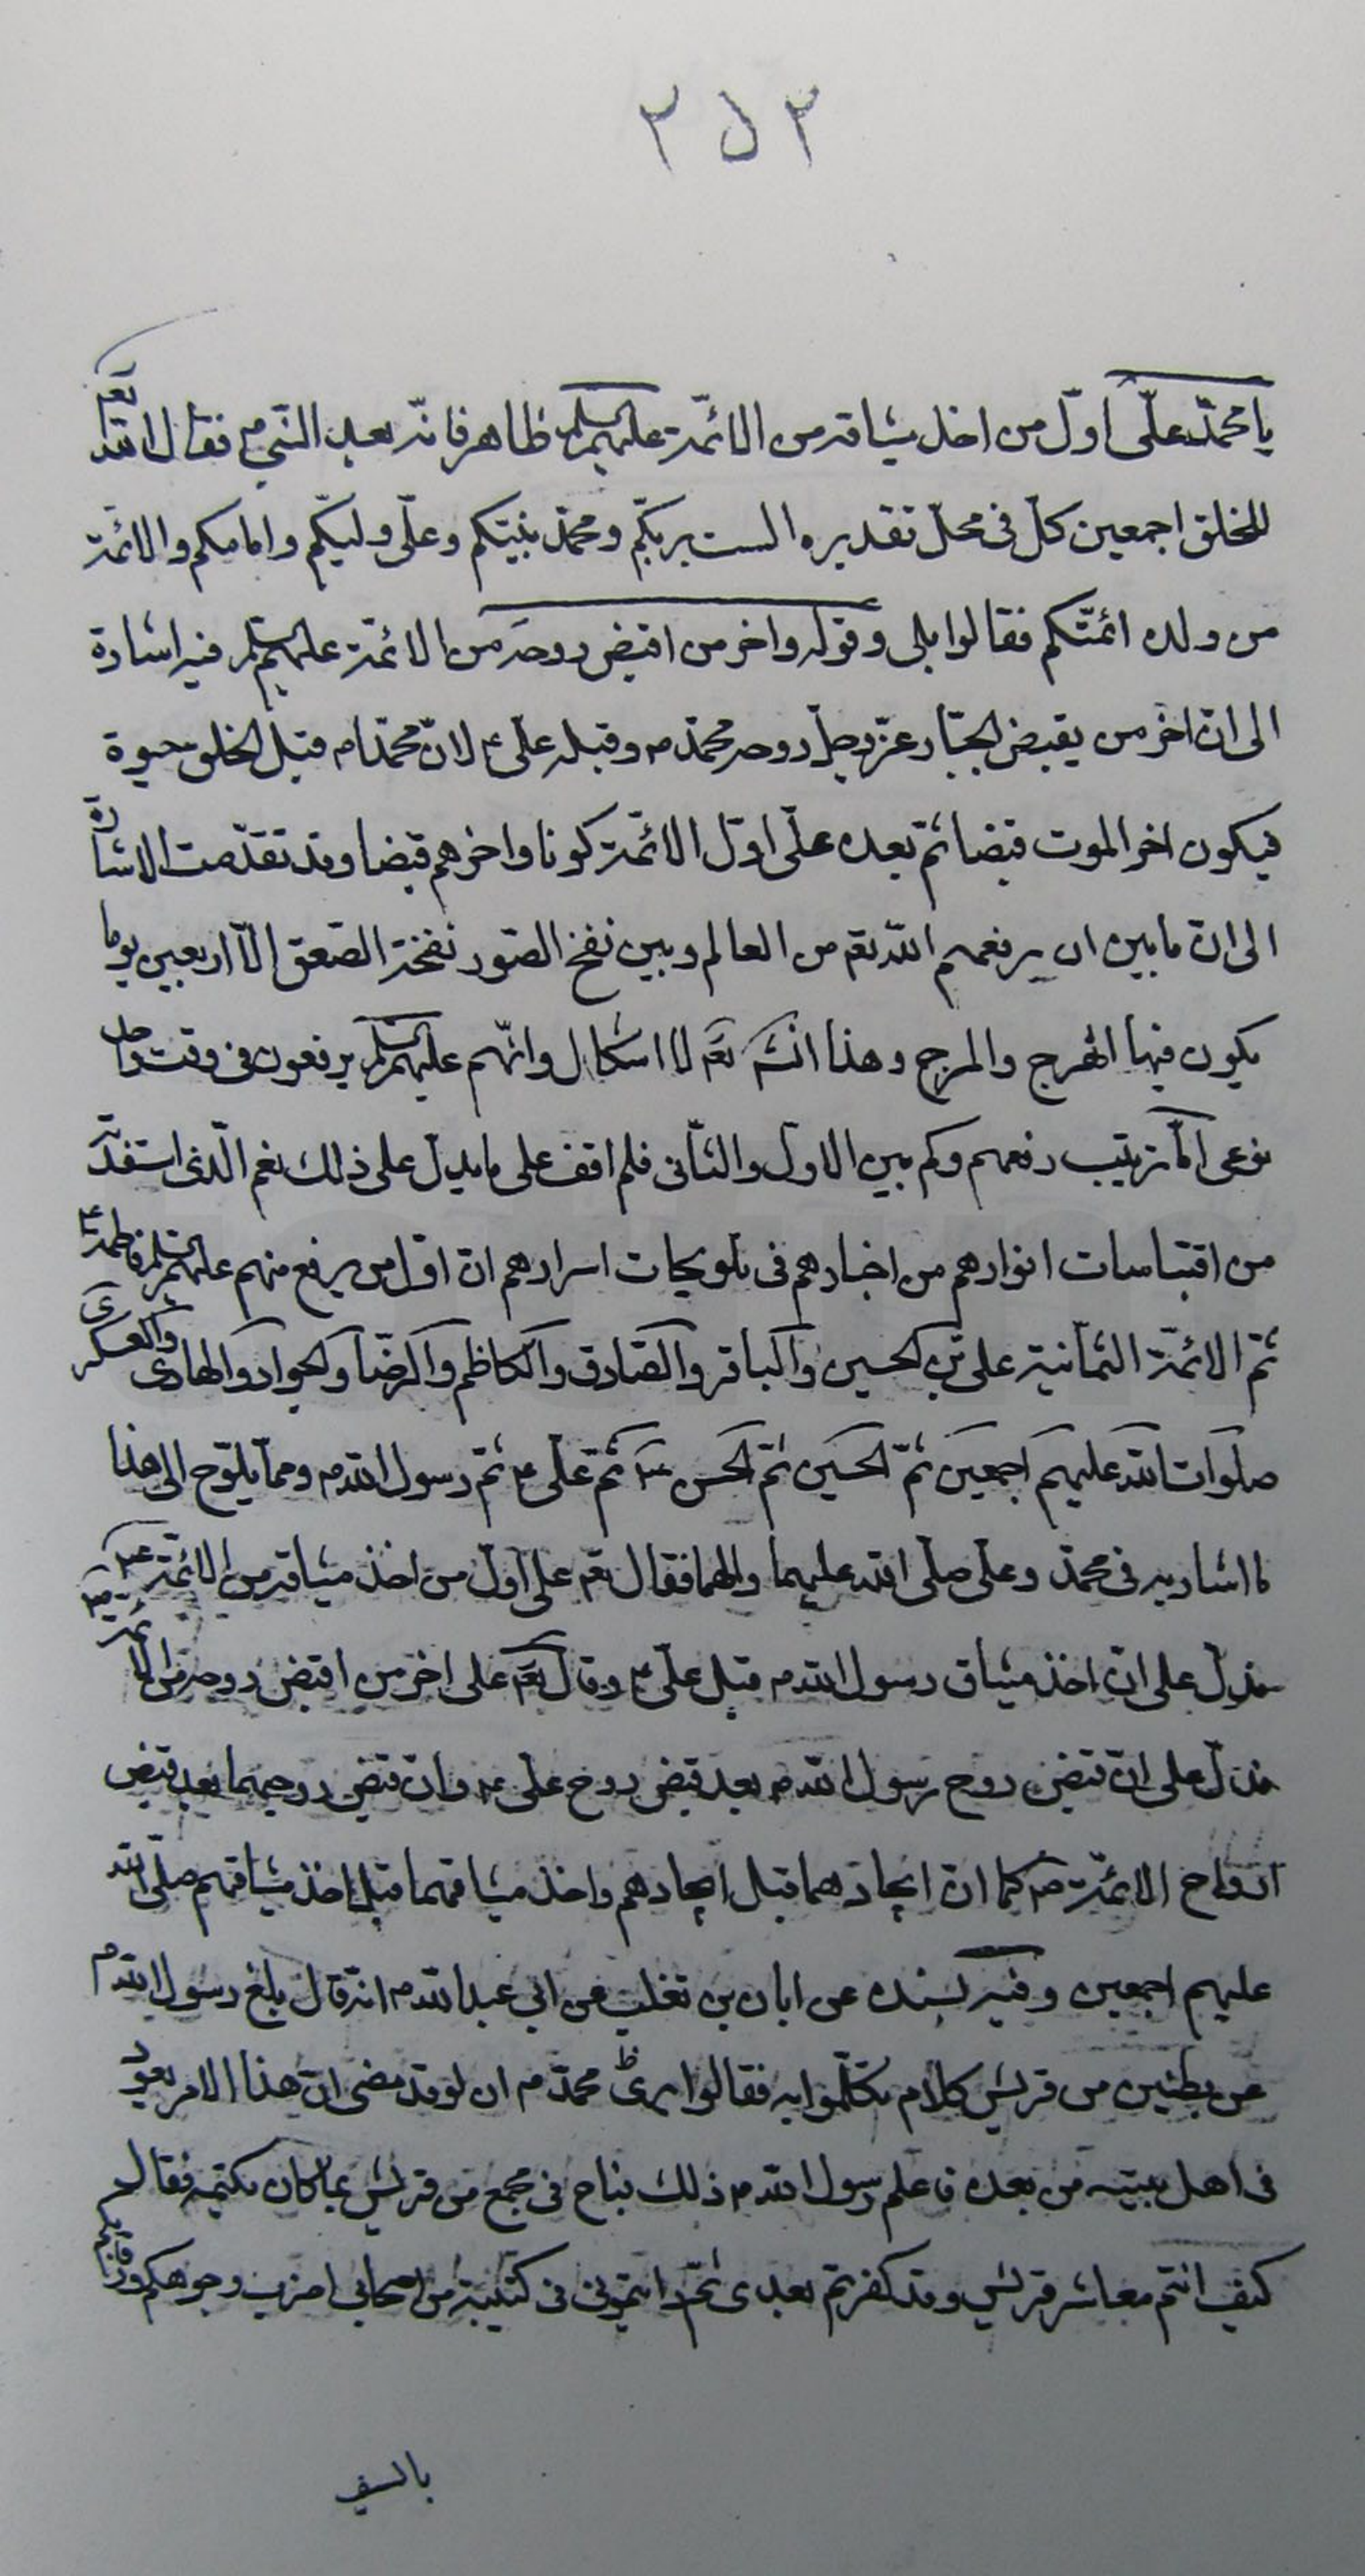 ٢٥٢
يا محمّد علّى اوّل من اخذ ميثاقه من الائمّة عليهم السلم ظاهر فانّه بعد النّبي ص فقال الله تعم
للخلق اجمعين كلّ فى محلّ تقديره الست بربكّم ومحمّد نبيّكم وعلّى وليكّم وامامكم والائمّة
من ولده ائمّتكم فقالوا بلى وقوله واخر من اقبض روحه من الائمّة عليهم السلم فيه اشارة
الى انّ اخر من يقبض الجبّار عزّ وجلّ روحه محمّد ص وقبله علّى ع لانّ محمّدا ص قبل الخلق حيوة
فيكون اخر الموت قبضا ثم بعده علّى اوّل الائمّة كونا واخرهم قبضا وقد تقدّمت الاشارة
الى انّ ما بين ان يرفعهم الله تعم من العالم وبين نفخ الصّور نفخة الصّعق الّا اربعين يوما
يكون فيها الهرج والمرج وهذا انشء تعم لا اشكال وانّهم عليهم السلم يرفعون فى وقت واحد
نوعى امّا ترتيب رفعهم وكم بين الاول والثّانى فلم اقف على ما يدلّ على ذلك نعم الّذى استفدته
من اقتباسات انوارهم من اخبارهم فى تلويحات اسرارهم انّ اوّل من يرفع منهم عليهم السلم فاطمة ع
ثم الائمّة الثمّانية على بن الحسين والباقر والصّادق والكاظم والرضّا والجواد والهادى والعسكرى
صلوات الله عليهم اجمعين ثمّ الحسين ثم الحسن ع ثم علّى ع ثم رسول الله ص ومما يلوّح الى هذا
ما اشار به فى محمّد وعلى صلّى الله عليهما والهما فقال تعم على اوّل من اخذ ميثاقه من الائمّة ع
فدلّ على انّ اخذ ميثاق رسول الله ص قبل علّى ع وقال تعم على اخر من اقبض روحه من الائمة
فدلّ على انّ قبض روح رسول الله ص بعد قبض روح علّى ع وانّ قبض روحيهما بعد قبض
ارواح الائمّة ع كما انّ ايجادهما قبل ايجادهم واخذ ميثاقهما قبل اخذ ميثاقهم صلّى الله
عليهم اجمعين وفيه بسنده عن ابان بن تغلب عن ابى عبد الله ع انّه قال بلغ رسول الله ص
عن بطنين من قريش كلام تكلّموا به فقالوا يرى محمّد ص ان لو قد مضى انّ هذا الامر يعود
فى اهل بيته من بعده فاعلم رسول الله ص ذلك فباح فى مجمع من قريش بما كان يكتمه فقال
كيف انتم معاشر قريش وقد كفرتم بعدى ثمّ رايتمونى فى كتيبة من اصحابى اضرب وجوهكم ورقابكم
بالسيف